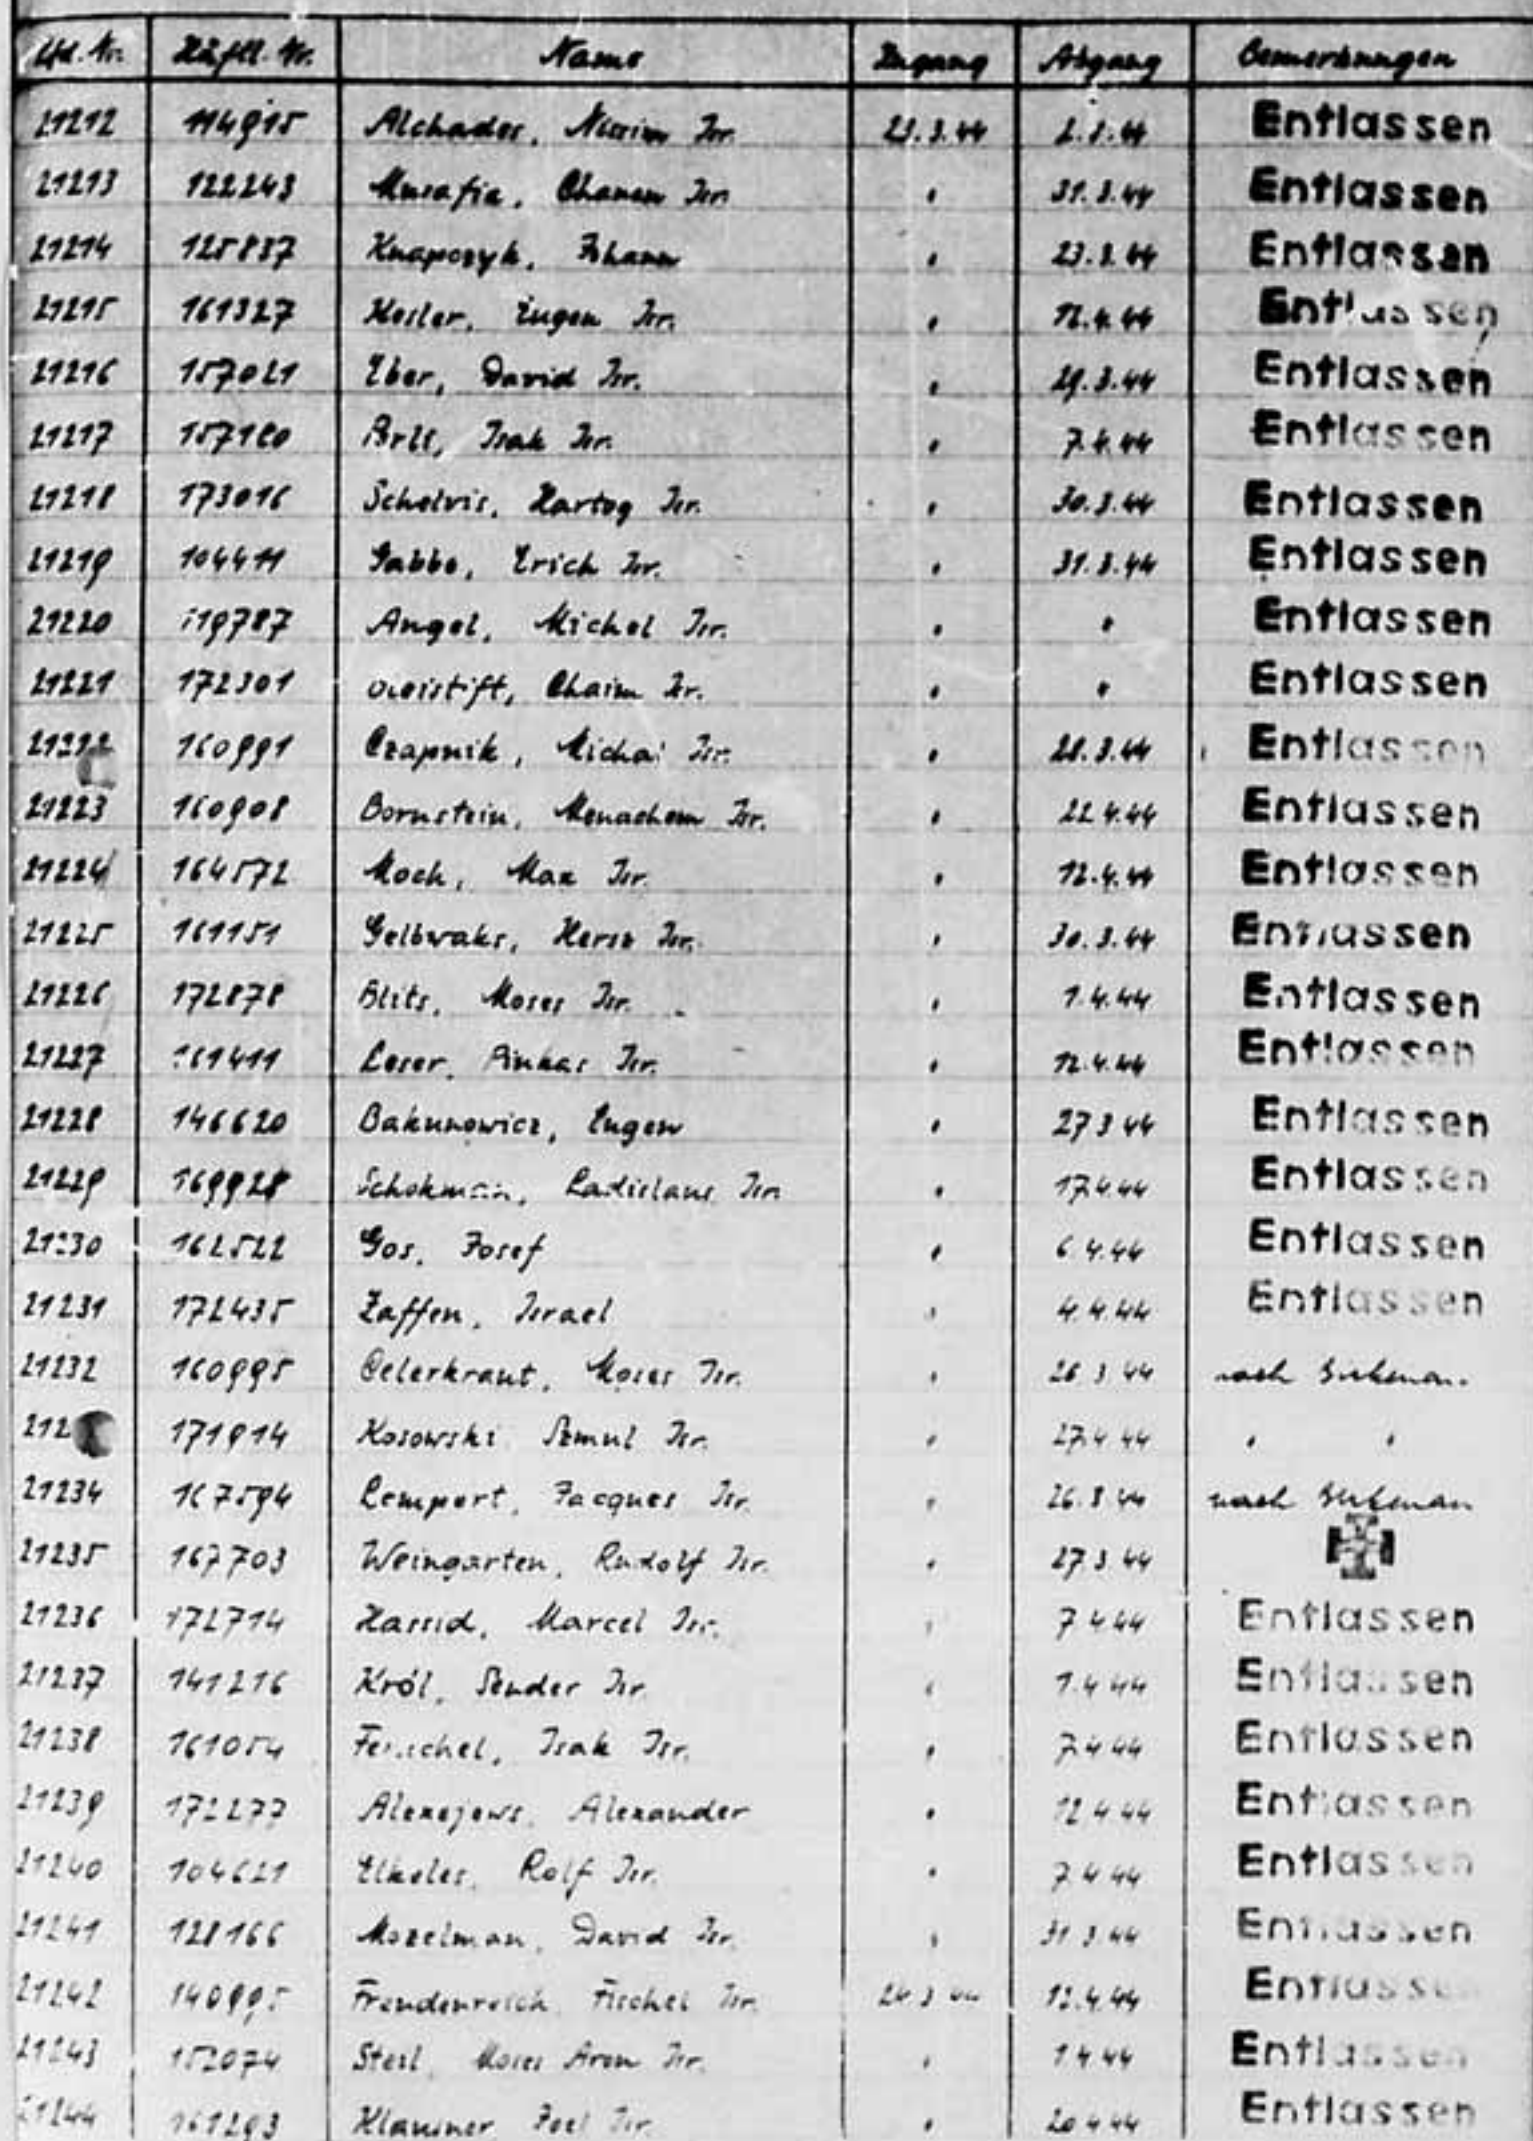 Lfd. Nr. Häftl. Nr. Name Zugang Abgang Bemerkungen
21212 114915 Alchades, Nissim Isr. 23.3.44 Entlassen
21213 122243 Musafia, Chanan Isr. " 31.3.44 Entlassen
21214 125837 Knapczyk, Johann " 23.3.44 Entlassen
21215 161327 Kesler, Eugen Isr. " 12.4.44 Entlassen
21216 157021 Eber, David Isr. " 29.3.44 Entlassen
21217 157180 Isak Isr. " 7.4.44 Entlassen
21218 173016 Schelvis, Hartog Isr. " 30.3.44 Entlassen
21219 104411 Gabbe, Erich Isr. " 31.3.44 Entlassen
21220 119787 Angel, Michel Isr. " " Entlassen
21221 172301 Chaim Isr. " " Entlassen
21222 160991 Czapnik, Isr. " 28.3.44 Entlassen
21223 160908 Bornstein, Menachem Isr. " 22.4.44 Entlassen
21224 164572 Moch, Max Isr. " 12.4.44 Entlassen
21225 161151 Gelbwaks, Hersz Isr. " 30.3.44 Entlassen
21226 172878 Blits, Moses Isr. " 1.4.44 Entlassen
21227 161411 Leser, Pinkas Isr. " 12.4.44 Entlassen
21228 146620 Bakunowicz, Eugen " 27.3.44 Entlassen
21229 169928 Ladislaus Isr. " 17.4.44 Entlassen
21230 162522 Gos, Josef " 6.4.44 Entlassen
21231 172435 Zaffen, Israel " 4.4.44 Entlassen
21232 160995 Celerkraut, Moses Isr. " 26.3.44 nach Birkenau
171914 Kosowski Szmul Isr. " 27.4.44 " "
21234 167594 Lempert, Jacques Isr. " 26.3.44 nach Birkenau
21235 167703 Weingarten, Rudolf Isr. " 27.3.44
21236 172714 Hassid, Marcel Isr. " 7.4.44 Entlassen
21237 141216 Król, Sender Isr. " 1.4.44 Entlassen
21238 161054 Isak Isr. " 7.4.44 Entlassen
21239 172277 Alexejews, Alexander " 12.4.44 Entlassen
21240 104621 Elkeles, Rolf Isr. " 7.4.44 Entlassen
21241 128166 Mozelman, David Isr. " 31.3.44 Entlassen
21242 140995 Freudenreich, Fischel Isr. 24.3.44 12.4.44 Entlassen
21243 152074 Moses Aron Isr. " 1.4.44 Entlassen
21244 161293 Klausner, Isr. " 20.4.44 Entlassen